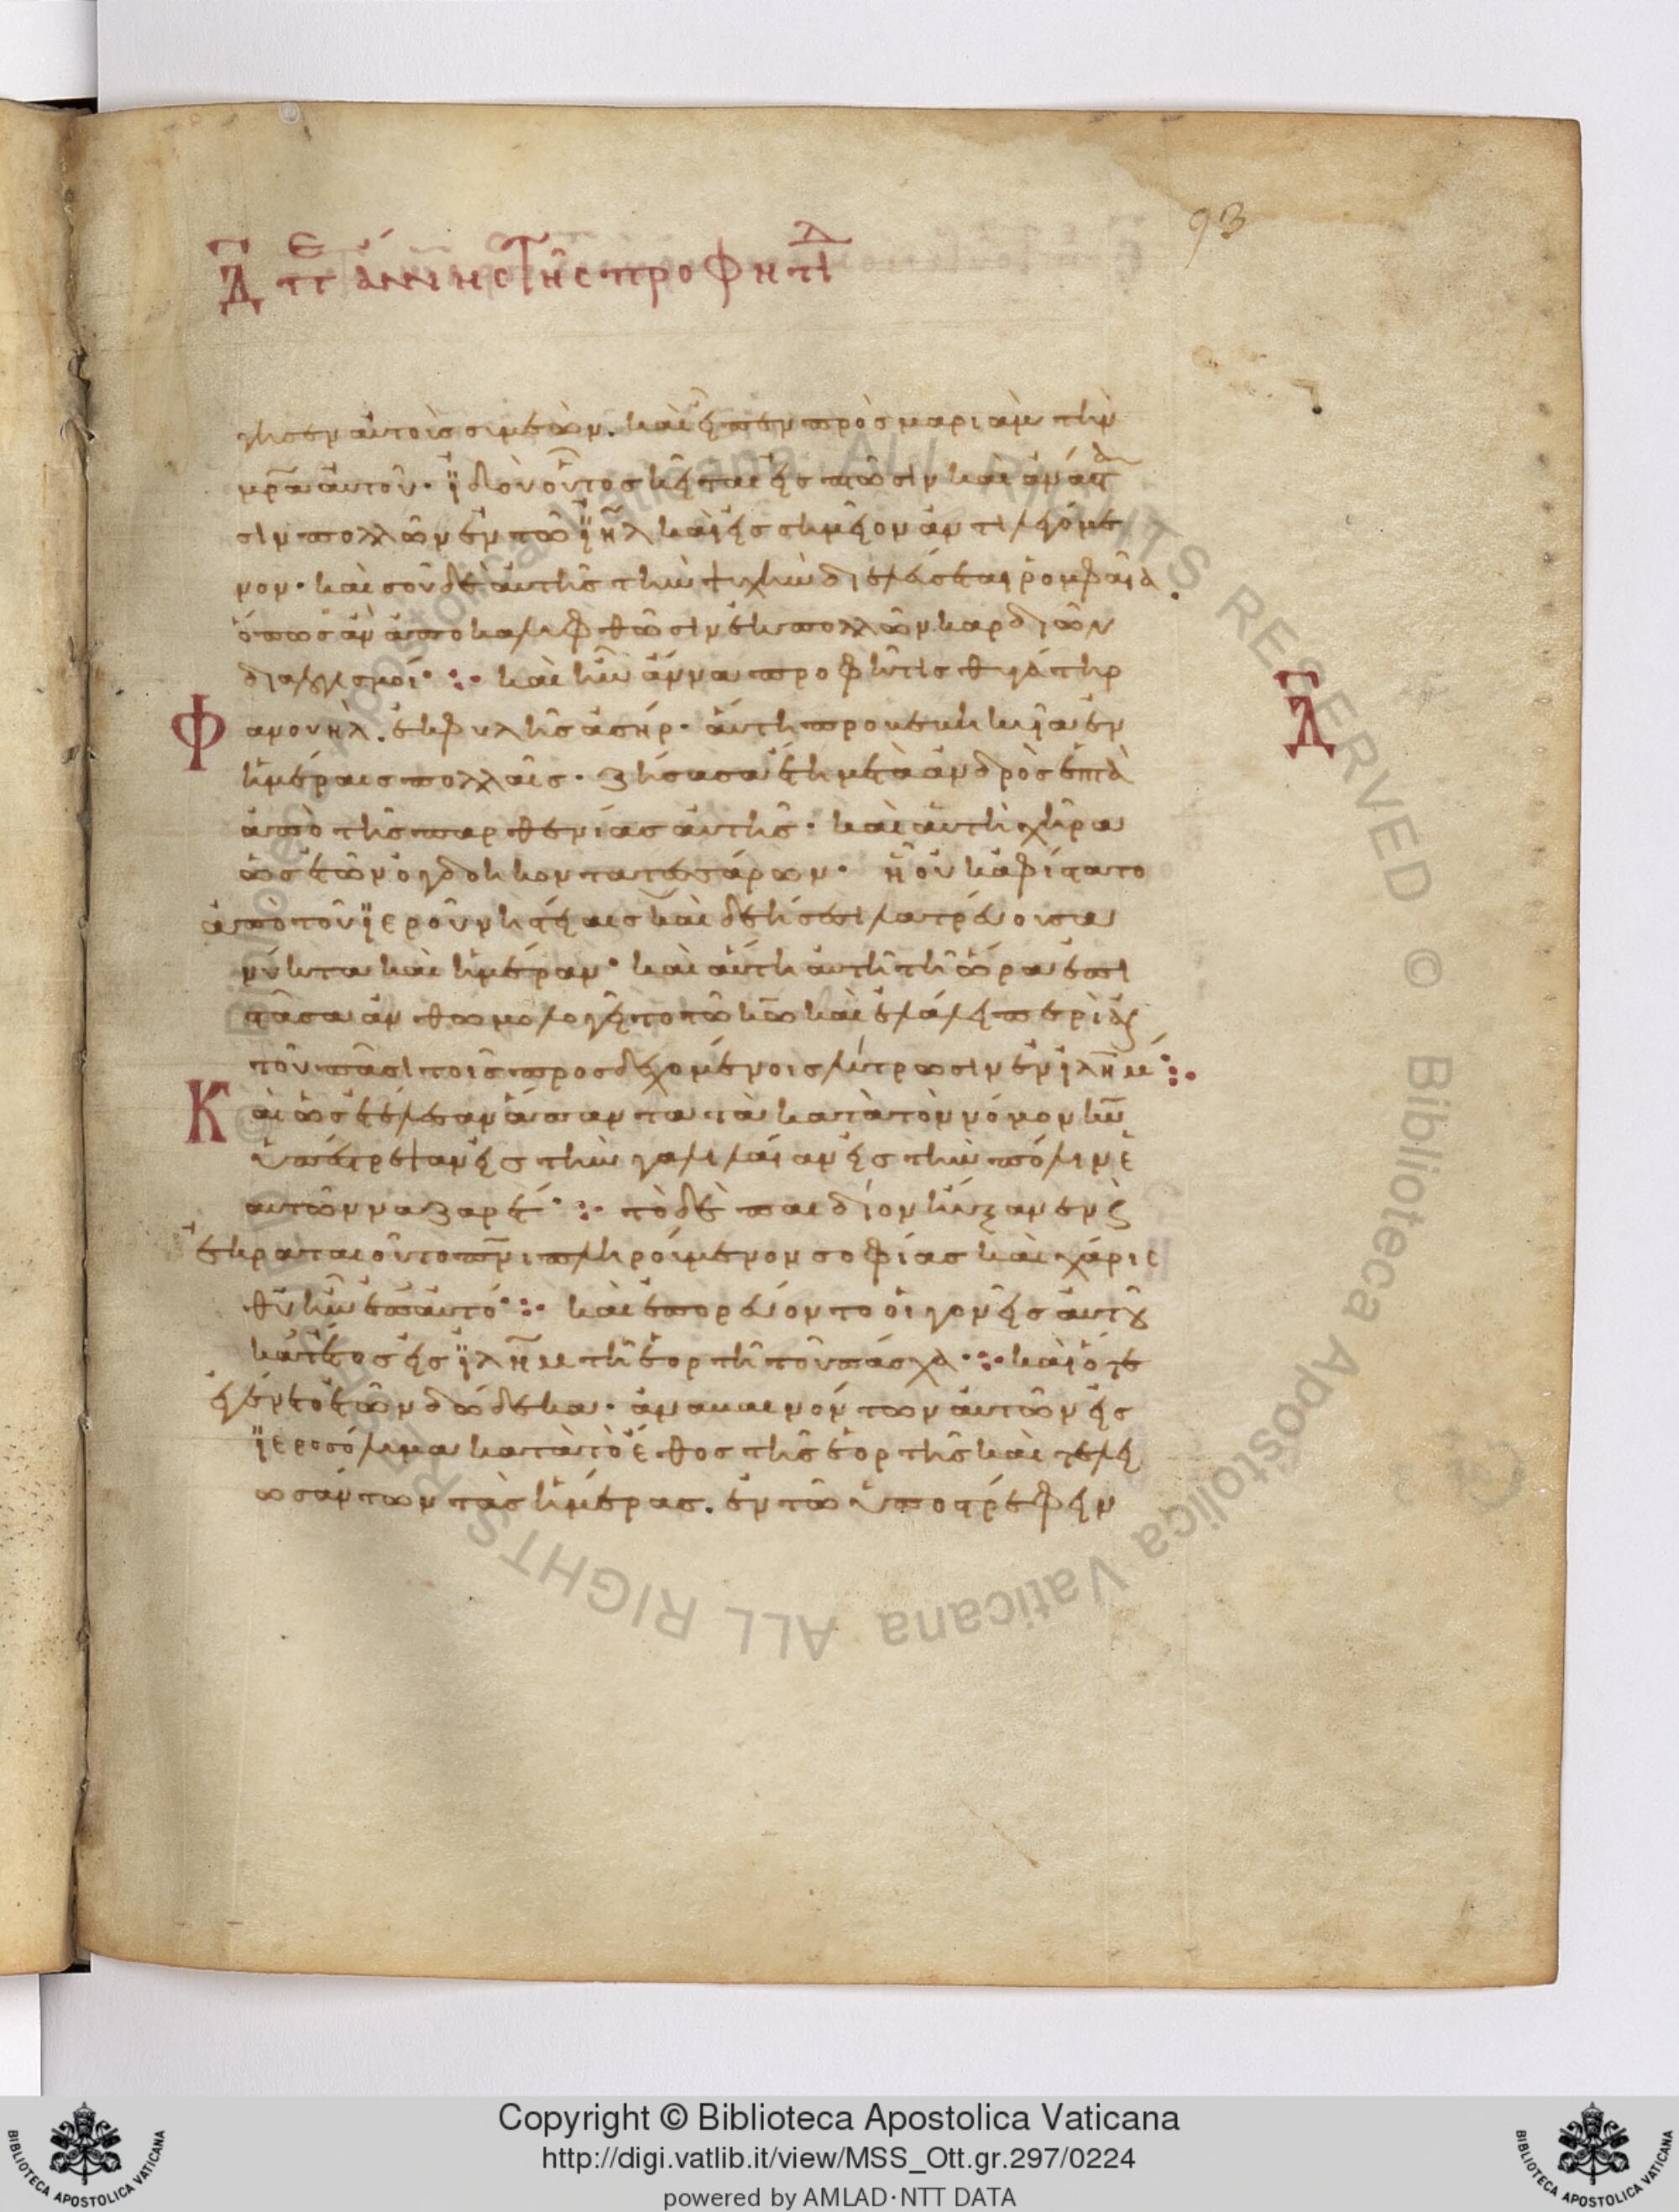 93
Δ πε Ἄννης τῆς προφητιδ
γησεν αὐτοῖς σιμεὼν. καὶ εἶπεν πρὸς μαριὰμ τὴν
μρα αὐτοῦ· ἰδοὺ οὗτος κεῖται εἰς πτῶσιν καὶ ἀνάστα
σιν πολλῶν ἐν τῶ ιηλ καὶ εἰς σημεῖον ἀντιλεγόμε
νον· καὶ σοῦ δὲ αὐτῆς τὴν ψυχὴν διελεύσεται ῥομφαία.
ὅπως ἂν ἀποκαλυφθῶσιν ἐκ πολλῶν καρδιῶν
διαλογισμοί· καὶ ἦν ἄννα προφῆτις θυγάτηρ
Φ αμουηλ. ἐκ φυλῆς ἀσήρ· αὕτη προβεβηκυῖα ἐν
ἡμέραις πολλαῖς· ζήσασα ἔτη μετὰ ἀνδρὸς ἑπτὰ
ἀπὸ τῆς παρθενίας αὐτῆς· καὶ αὐτὴ χῆρα
ὡς ἐτῶν ὀγδοήκοντα τεσσάρων· ἣ οὐκ ἀφίστατο
ἀπὸ τοῦ ἱεροῦ νηστείαις καὶ δεήσεσι λατρεύουσα
νύκτα καὶ ἡμέραν· καὶ αὕτη αὐτῆ τῆ ὥρα ἐπι
στᾶσα ἀνθωμολογεῖτο τῶ κω καὶ ἐλάλει περὶ αὐ
τοῦ πᾶσι τοῖς προσδεχομένοις λύτρωσιν ἐν ιλημ
Κ αὶ ὡς ἐτέλεσαν ἅπαντα τὰ κατὰ τὸν νόμον κυ
ὑπέστρεψαν εἰς τὴν γαλιλαίαν εἰς τὴν πόλιν ἑ
αυτῶν ναζαρέτ· τὸ δὲ παιδίον ηὔξανεν καὶ
ἐκραταιοῦτο πνι πληρούμενον σοφίας καὶ χάρις
θυ ἦν ἐπ αὐτό· καὶ ἐπορεύοντο οἱ γονεῖς αὐτοῦ
κατ ἔτος εἰς ιλημ τῆ ἑορτῆ τοῦ πάσχα· καὶ ὅτε
ἐγένετο ἐτῶν δώδεκα· ἀναβαινόντων αὐτῶν εἰς
ἱεροσόλυμα κατὰ τὸ ἔθος τῆς ἑορτῆς καὶ τελει
ωσάντων τὰς ἡμέρας. ἐν τῶ ὑποστρέφειν
Δ
Copyright © Biblioteca Apostolica Vaticana
http://digi.vatlib.it/view/MSS_Ott.gr.297/0224
powered by AMLAD·NTT DATA
BIBLIOTECA APOSTOLICA VATICANA
BIBLIOTECA APOSTOLICA VATICANA
© Biblioteca Apostolica Vaticana ALL RIGHTS RESERVED © Biblioteca Apostolica Vaticana ALL RIGHTS RESERVED